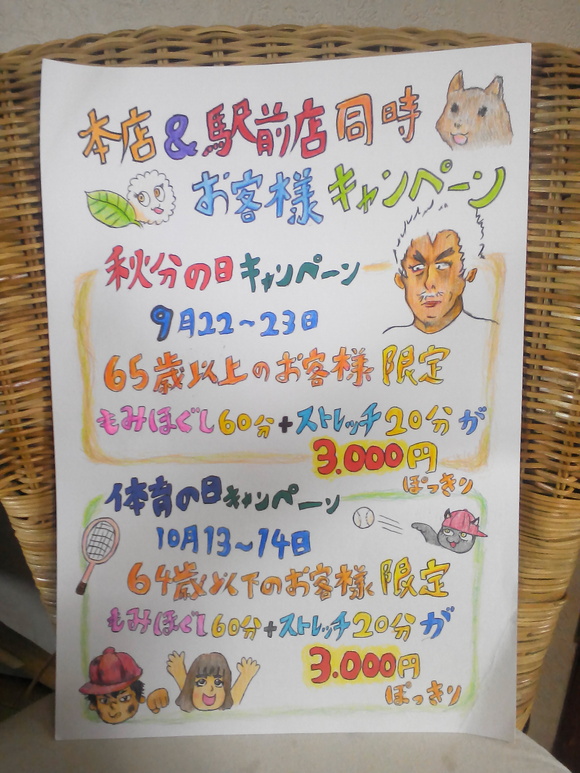 本店&駅前店同時
お客様キャンペーン
秋分の日キャンペーン
9月22~23日
65歳以上のお客様限定
もみほぐし60分+ストレッチ20分が
3.000円
ぽっきり
体育の日キャンペーン
10月13~14日
64歳以下のお客様限定
もみほぐし60分+ストレッチ20分が
3.000円
ぽっきり